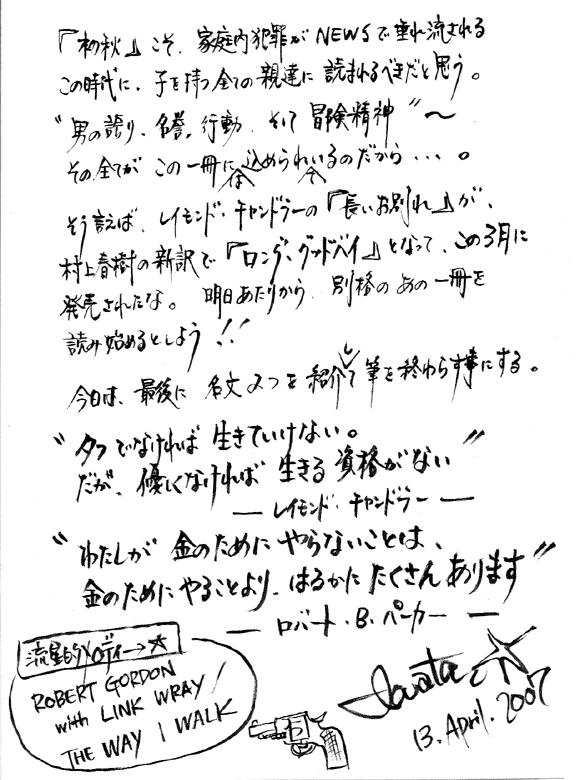 『初秋』こそ、家庭内犯罪がNEWSで垂れ流される
この時代に、子を持つ全ての親達に読まれるべきだと思う。
“男の誇り、名誉、行動、そして冒険精神”〜
その全てがこの一冊に込められいるのだから...。
は 今
そう言えば、レイモンド・チャンドラーの『長いお別れ』が、
村上春樹の新訳で『ロング、グッドベイ』となって、この3月に
発売されたな。明日あたりから、別格のあの一冊を
読み始めるとしよう!!
今日は、最後に名文2つを紹介して筆を終わらす事にする。
“タフでなければ生きていけない。
だが、優しくなければ生きる資格がない”
— レイモンド・チャンドラー —
“わたしが金のためにやらないことは、
金のためにやることより、はるかにたくさんあります”
— ロバート・B・パーカー —
流星的メロディー→★
ROBERT GORDON
with LINK WRAY/
THE WAY I WALK
13. April. 2007